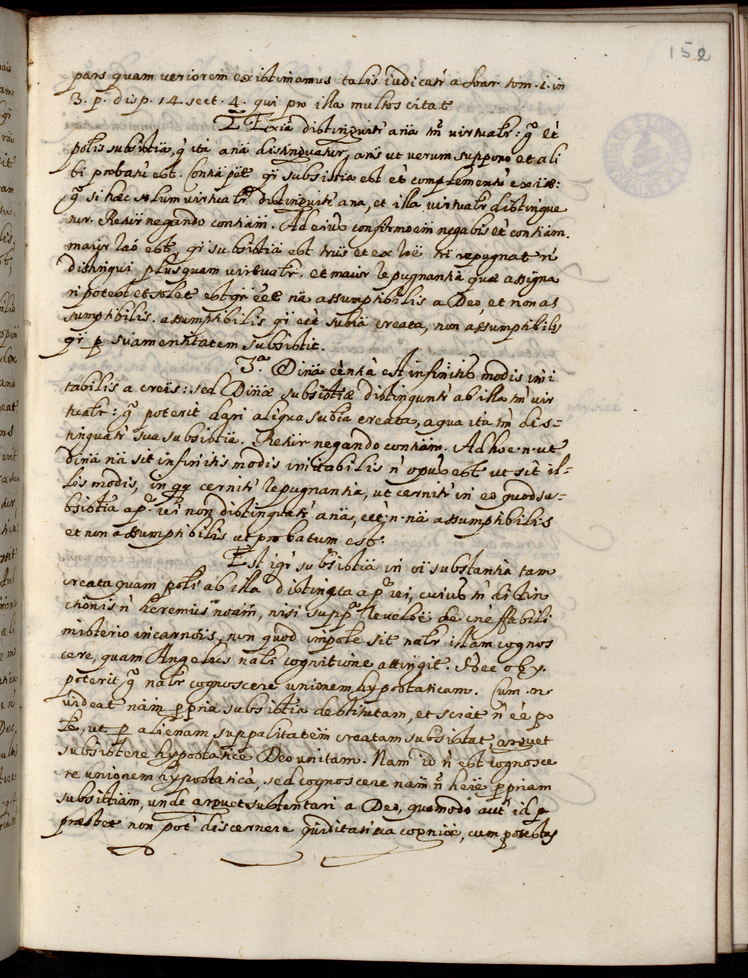 152
pars quam veriorem existimamus talis iudicatr a Soar. tom. 1. in
3. p. disp. 14. sect. 4. qui pro illa multos citat
2ª Exiã distinguitr anã tm̃ virtualr: gº et
possis subsistiã, q̃ ita anã distinguatur, ans ut verum suppono et ali
bi probatũ est. Contiã
gº si hæc solum virtualr distinguitr ana, et illa virtualr distingue
tur. Respr negando contiãm. Ad eius confirmoẽm negabis etẽ contiãm.
maior est, qr subsistiã est et ex repugnat
distingui plusquam virtualr. et maior repugnantia quæ assigna
ri potest et solet est qr eẽt nã assumptibilis a Deo et non as
sumptibilis. assumptibilis qr eẽt subiã creata, non assumptibilis
qr p suam entitatem subsistit.
3ª. Dinã eẽntiã est infinitis modis imi
tabilis a creis: sed Dinæ subsistiæ distinguntr ab illa tm̃ vir
tualr: gº poterit dari aliqua subiã creata, a qua ita tm̃ dis-
tinguatr sua subsistiã. Respr negando contiãm. Ad hoc n. ut
Dinã nã sit infinitis modis imitabilis ñ opus est ut sit il-
los modis, in qq cernitr repugnantia, ut cernitr in eo quod su-
bsistiã a p. rei non distinguatr anã, eẽt n. nã assumptibilis
et non assumptibilis ut probatum est.
Est igr subsistiã in oĩ substantia tam
creata quam possi ab illa distincta a p. rei, cuius tm̃ distin
ctionis ñ heremus noam̃, nisi suppª reveloẽ de ineffabili
misterio incarnois, non quod impole sit nalr illam cognos
cere, quam Angelus nali cognitione attingit.
poterit gº nalr cognoscere unionem hypostaticam. Cum n.
videat nam̃ ppria subsistiã destitutam, et sciat ñ eẽ po
ut p alienam suppalitatem creatam subsistat, arguet
subsistere hypostatice Deo unitam. Nam id ñ est cognosce
re unionem hypostaticã, sed cognoscere nam̃ ñ here ppriam
subsistiãm, unde arguet sustentari a Deo, quomodo aut id p
præstet non pot discernere quidditatiua cognioẽ, cum potestas